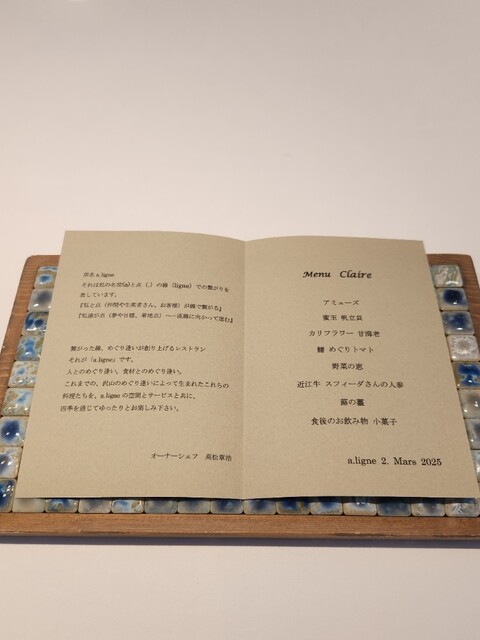 店名 a.ligne
それは私の名前(a)と点（.）の線（ligne）での繋がりを
表しています。
『私と点（仲間や生産者さん、お客様）が線で繋がる』
『私達が点（夢や目標、着地点）一一直線に向かって進む』
繋がった線、めぐり逢いが創り上げるレストラン
それが『a.ligne』です。
人とのめぐり逢い。食材とのめぐり逢い。
これまでの、沢山のめぐり逢いによって生まれたこれらの
料理たちを、a.ligne の空間とサービスと共に、
四季を通じてゆったりとお楽しみ下さい。
オーナーシェフ 高松章浩
Menu Claire
アミューズ
蜜玉 帆立貝
カリフラワー 甘海老
鰆 めぐりトマト
野菜の恵
近江牛 スフィーダさんの人参
苺の雛
食後のお飲み物 小菓子
a.ligne 2. Mars 2025